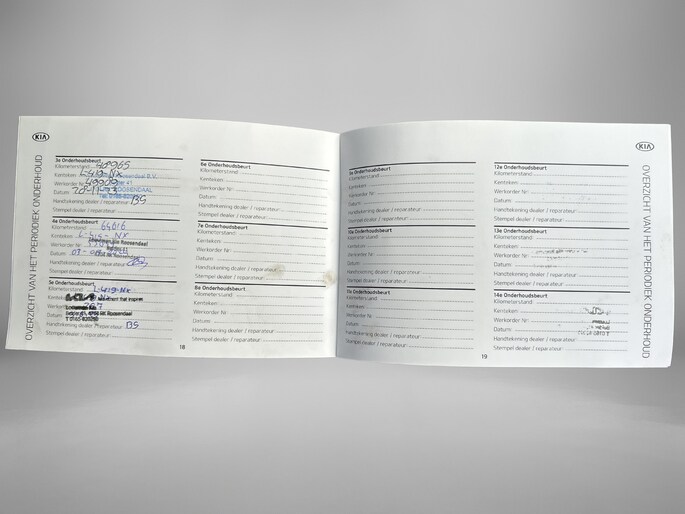 KIA
OVERZICHT VAN HET PERIODIEK ONDERHOUD
3e Onderhoudsbeurt
Kilometerstand 40965
Kenteken: L-419-NX
Werkorder Nr:
Datum:
ROOSENDAAL
Handtekening dealer / reparateur: BS
Stempel dealer / reparateur:
4e Onderhoudsbeurt
Kilometerstand: 64616
Kenteken: L-419-NX
Roosendaal
Werkorder Nr:
Datum:
Handtekening dealer / reparateur:
Stempel dealer / reparateur:
5e Onderhoudsbeurt
Kilometerstand: L-419-NX
KIA Movement that inspires
Kenteken:
Werkorder
Datum: Roosendaal
Handtekening dealer / reparateur: BS
Stempel dealer / reparateur:
6e Onderhoudsbeurt
Kilometerstand:
Kenteken:
Werkorder Nr:
Datum:
Handtekening dealer / reparateur:
Stempel dealer / reparateur:
7e Onderhoudsbeurt
Kilometerstand:
Kenteken:
Werkorder Nr:
Datum:
Handtekening dealer / reparateur:
Stempel dealer / reparateur:
8e Onderhoudsbeurt
Kilometerstand:
Kenteken:
Werkorder Nr:
Datum:
Handtekening dealer / reparateur:
Stempel dealer / reparateur:
18
9e Onderhoudsbeurt
Kilometerstand:
Kenteken:
Werkorder Nr:
Datum:
Handtekening dealer / reparateur:
Stempel dealer / reparateur:
10e Onderhoudsbeurt
Kilometerstand:
Kenteken:
Werkorder Nr:
Datum:
Handtekening dealer / reparateur:
Stempel dealer / reparateur:
11e Onderhoudsbeurt
Kilometerstand:
Kenteken:
Werkorder Nr:
Datum:
Handtekening dealer / reparateur:
Stempel dealer / reparateur:
12e Onderhoudsbeurt
Kilometerstand:
Kenteken:
Werkorder Nr:
Datum:
Handtekening dealer / reparateur:
Stempel dealer / reparateur:
13e Onderhoudsbeurt
Kilometerstand:
Kenteken:
Werkorder Nr:
Datum:
Handtekening dealer / reparateur:
Stempel dealer / reparateur:
14e Onderhoudsbeurt
Kilometerstand:
Kenteken:
Werkorder Nr:
Datum:
Handtekening dealer / reparateur:
Stempel dealer / reparateur:
19
KIA
OVERZICHT VAN HET PERIODIEK ONDERHOUD